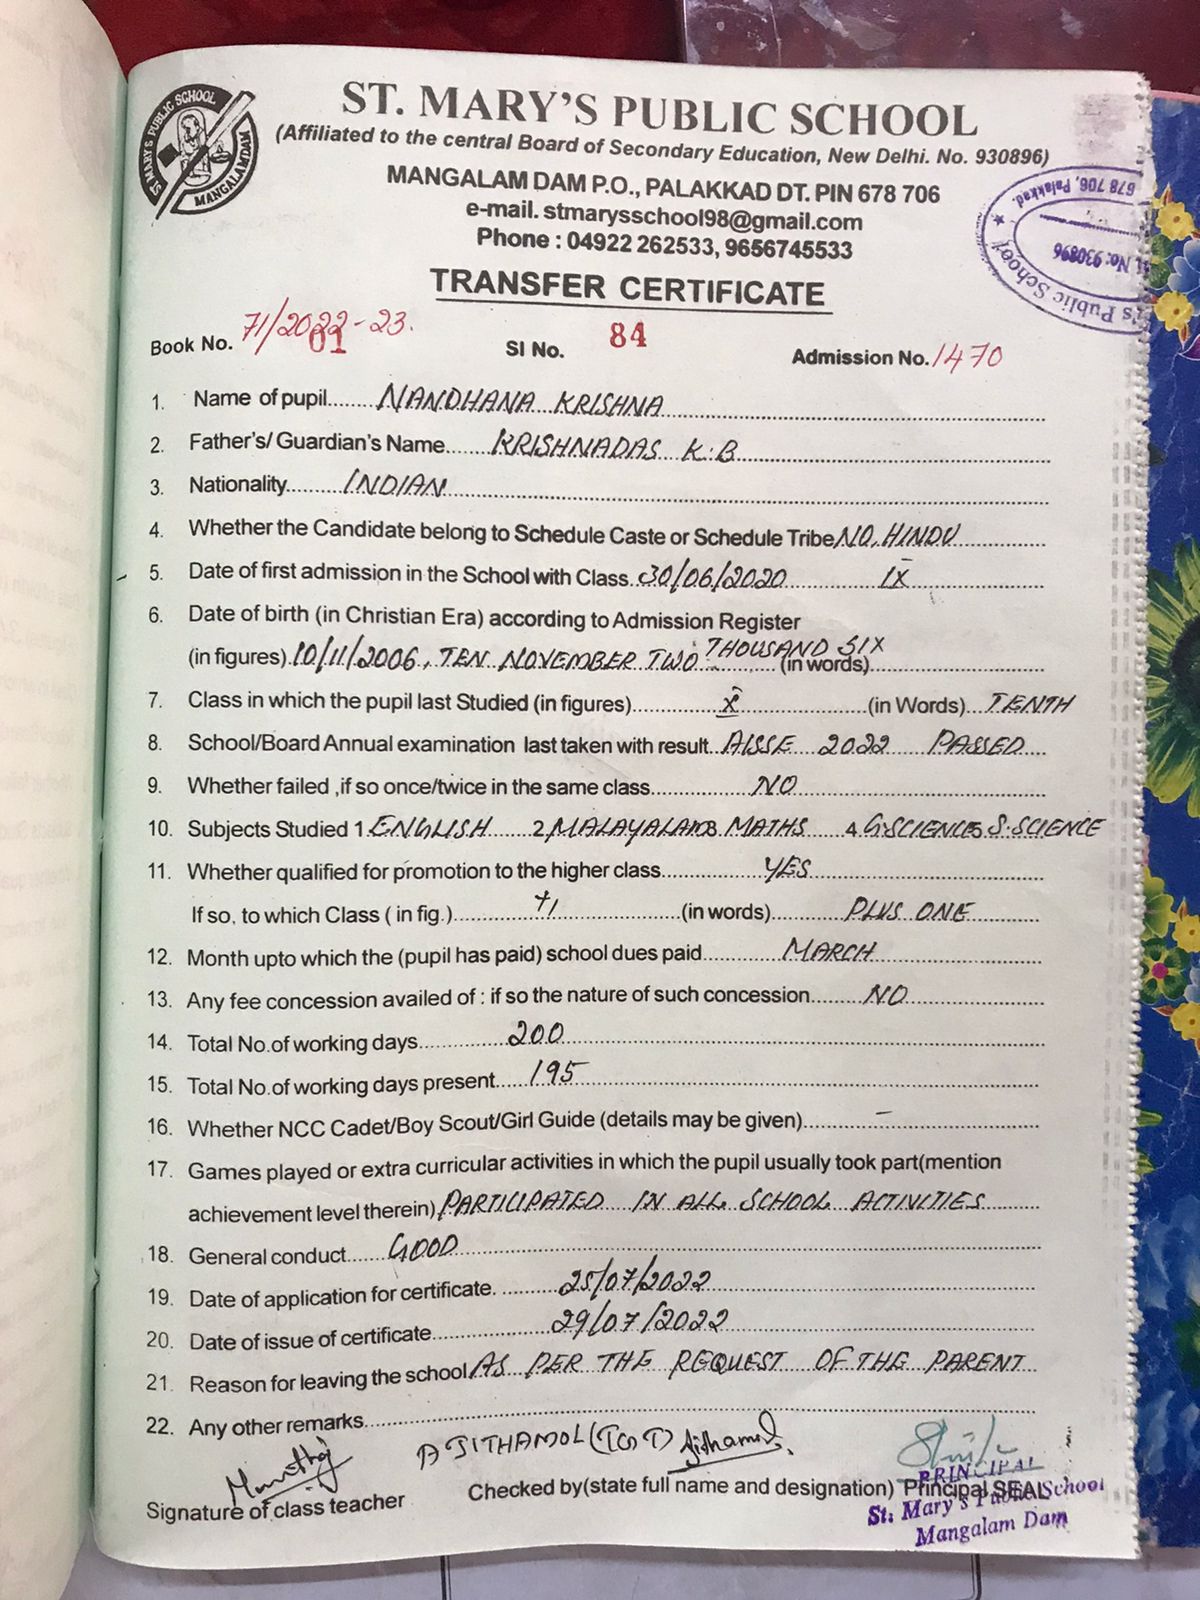 ST. MARY'S PUBLIC SCHOOL
MANGALAMDAM
ST. MARY'S PUBLIC SCHOOL
(Affiliated to the central Board of Secondary Education, New Delhi. No. 930896)
MANGALAM DAM P.O., PALAKKAD DT. PIN 678 706
e-mail. stmarysschool98@gmail.com
Phone : 04922 262533, 9656745533
678 706, Palakkad
No: 930896
's Public School
TRANSFER CERTIFICATE
Book No. 71/2022-23. 01 SI No. 84 Admission No. 1470
1. Name of pupil....... NANDHANA KRISHNA
2. Father's/ Guardian's Name....... KRISHNADAS K.B
3. Nationality....... INDIAN
4. Whether the Candidate belong to Schedule Caste or Schedule Tribe NO, HINDU
5. Date of first admission in the School with Class. 30/06/2020 IX
6. Date of birth (in Christian Era) according to Admission Register
(in figures). 10/11/2006, TEN NOVEMBER TWO THOUSAND SIX (in words)
7. Class in which the pupil last Studied (in figures)....... X (in Words)... TENTH
8. School/Board Annual examination last taken with result.. AISSE 2022 PASSED
9. Whether failed ,if so once/twice in the same class....... NO
10. Subjects Studied 1 ENGLISH 2 MALAYALAM 3 MATHS 4 G.SCIENCE 5 S.SCIENCE
11. Whether qualified for promotion to the higher class....... YES
If so, to which Class ( in fig.)....... +1 (in words)....... PLUS ONE
12. Month upto which the (pupil has paid) school dues paid....... MARCH
13. Any fee concession availed of : if so the nature of such concession....... NO
14. Total No.of working days....... 200
15. Total No.of working days present..... 195
16. Whether NCC Cadet/Boy Scout/Girl Guide (details may be given)....... –
17. Games played or extra curricular activities in which the pupil usually took part(mention
achievement level therein) PARTICIPATED IN ALL SCHOOL ACTIVITIES
18. General conduct...... GOOD
19. Date of application for certificate. ....... 25/07/2022
20. Date of issue of certificate....... 29/07/2022
21. Reason for leaving the school AS PER THE REQUEST OF THE PARENT
22. Any other remarks.......
AJITHAMOL (TGT)
Signature of class teacher Checked by(state full name and designation) Principal SEAL
PRINCIPAL
St. Mary's Public School
Mangalam Dam